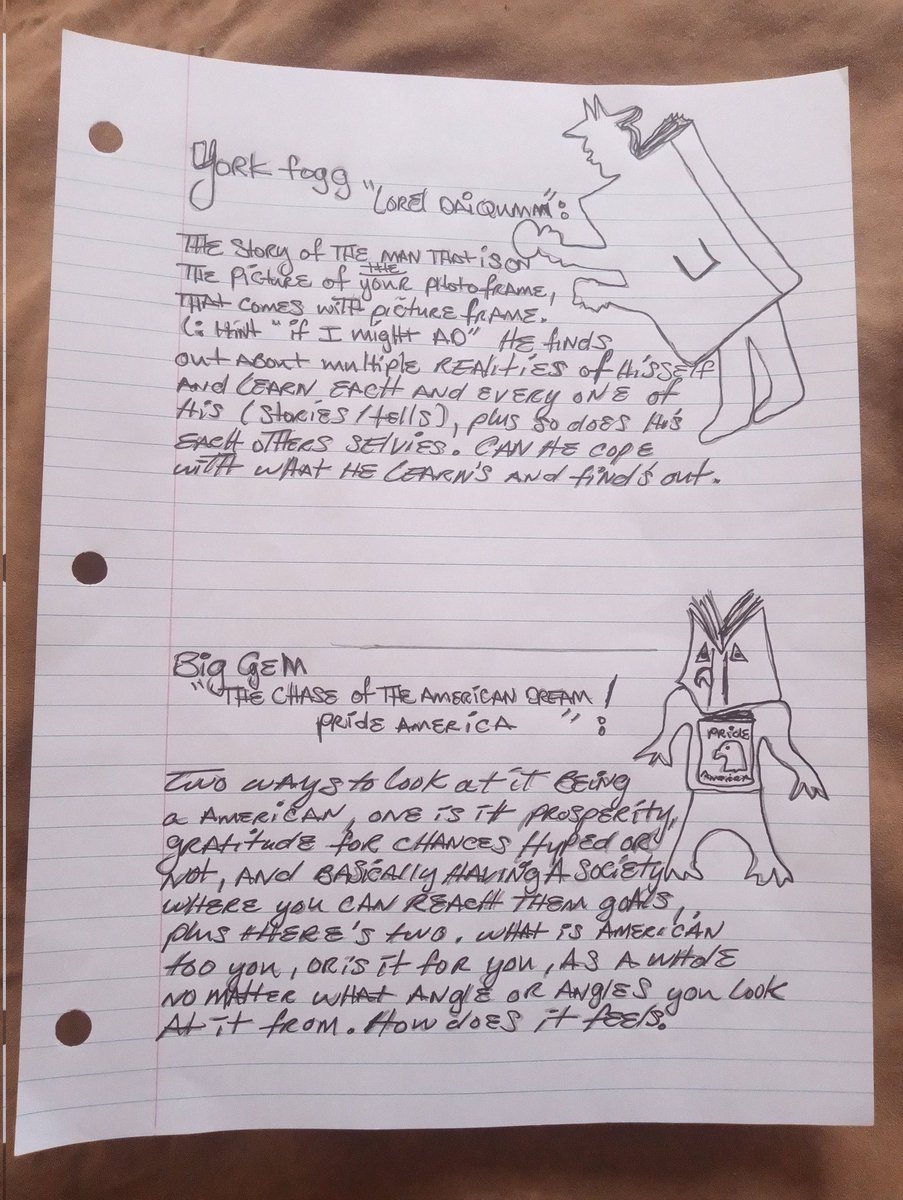 York fogg
"LOREl DAiQUMM":
THE STORY of THE MAN THAT iS ON
THE PicTURE of THE yOUR PHOTO fRAME,
THAT COMES WiTH picTURE fRAME.
(: HiNT "if I migHT AD" HE fiNDS
OUT ABOUT mULTiplE REALiTiES Of HiSSElf
AND LEARN EACH AND EVERY ONE Of
HiS (STORiES/TEllS), plUS SO DOES HiS
EACH OTHERS SELVIES. CAN HE COpE
WiTH WHAT HE LEARN'S AND fiND'S OUT.
Big GEM
"THE CHASE Of THE AMERiCAN DREAM /
pRiDE AMERiCA ":
PRiDE
AMERiCA
TWO WAyS TO lOOK AT iT BEiNG
a AMERiCAN, ONE iS iT pROSPERiTy,
gRATiTUDE fOR CHANCES HypED OR
NOT, AND BASiCAlly HAViNG A SOCiETy
WHERE yOU CAN REACH THEM gOAlS,
plUS THERE'S TWO. WHAT iS AMERiCAN
TOO yOU, OR iS iT fOR yOU, AS A WHOlE
NO MATTER WHAT ANglE OR ANglES yOU lOOK
AT iT fROM. HOW DOES iT fEElS.